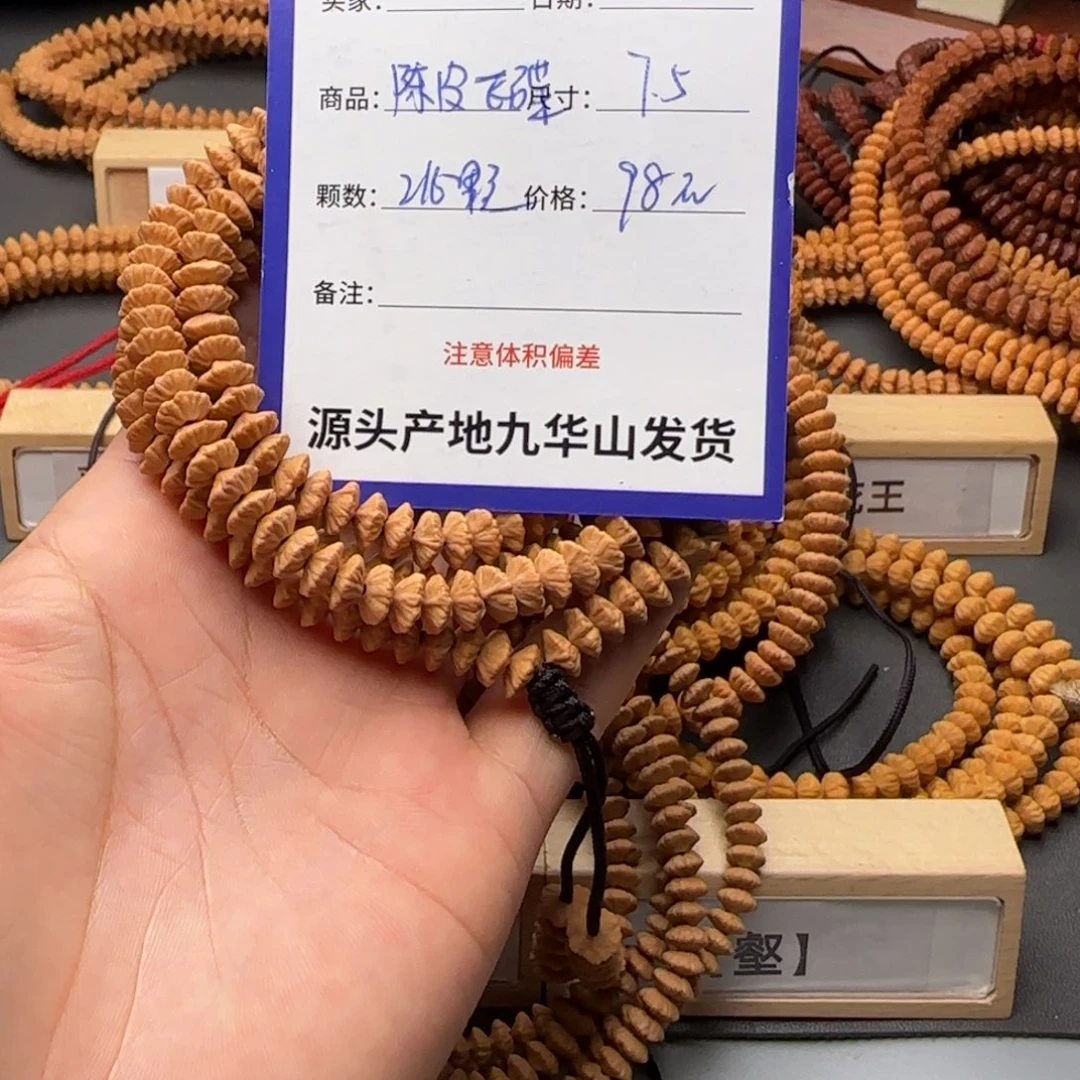 卖家： 日期：
商品：陈皮飞碟 尺寸：7.5
颗数：216颗 价格：98元
备注：
注意体积偏差
源头产地九华山发货
花王
壑】